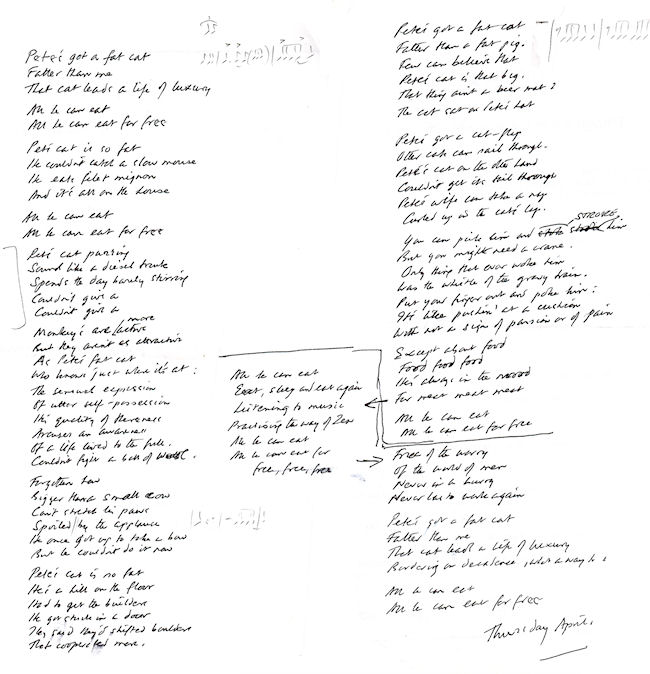 Pete's got a fat cat
Fatter than me
That cat leads a life of luxury
All he can eat
All he can eat for free
Pete's cat is so fat
He couldn't catch a slow mouse
He eats filet mignon
And it's all on the house
All he can eat
All he can eat for free
Pete's cat purring
Sound like a diesel truck
Spends the day barely stirring
Couldn't give a
Couldn't give a
Monkey's are more active
But they aren't as attractive
As Pete's fat cat
who knows just where it's at:
The sensual expression
Of utter self-possession
His quality of thereness
Arouses an awareness
Of a life lived to the full.
Couldn't fight a ball of wool.
Forgotten how
Bigger than a small cow
Can't stretch his paws
Spoiled by the applause
He once got up to take a bow
But he couldn't do it now
Pete's cat is so fat
He's a hill on the floor
Had to get the builders
He got stuck in a door
They said they'd shifted boulders
That cooperated more.
All he can eat
Eat, sleep and eat again
Listening to music
Practising the way of Zen
All he can eat
All he can eat for
free, free, free
Pete's got a fat cat
Fatter than a fat pig.
Few can believe that
Pete's cat is that big.
That thing ain't a beer mat?
The cat sat on Pete's hat
Pete's got a cat-flap
Other cats can sail through.
Pete's cat on the other hand
Couldn't get his tail through
Pete's wife can take a nap
Curled up in the cat's lap.
STROKE
You can pick him and him
But you might need a crane.
Only thing that ever woke him
Was the whistle of the gravy train.
Put your finger out and poke him:
It's like pushin' at a cushion
With not a sign of passion or of pain
Except about food
Food food food
He's always in the mooood
For meat meat meat
All he can eat
All he can eat for free
Free of the worry
Of the world of men
Never in a hurry
Never has to work again
Pete's got a fat cat
Fatter than me
That cat leads a life of luxury
Bordering on decadence, what a way to be
All he can eat
All he can eat for free
Thursday April.